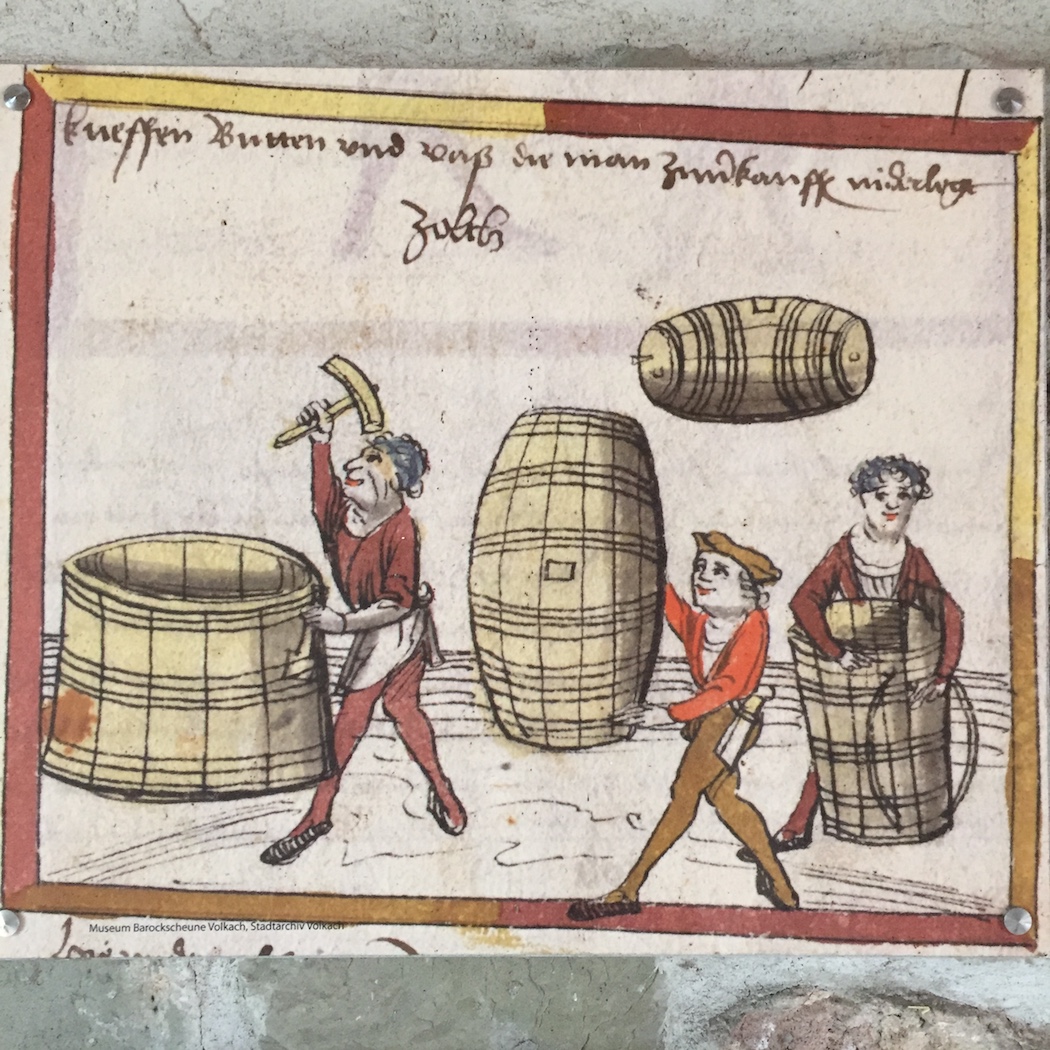 kueffen Butten vnd vaß die man zumkauff niderlegt
Zoltz
Museum Barockscheune Volkach, Stadtarchiv Volkach